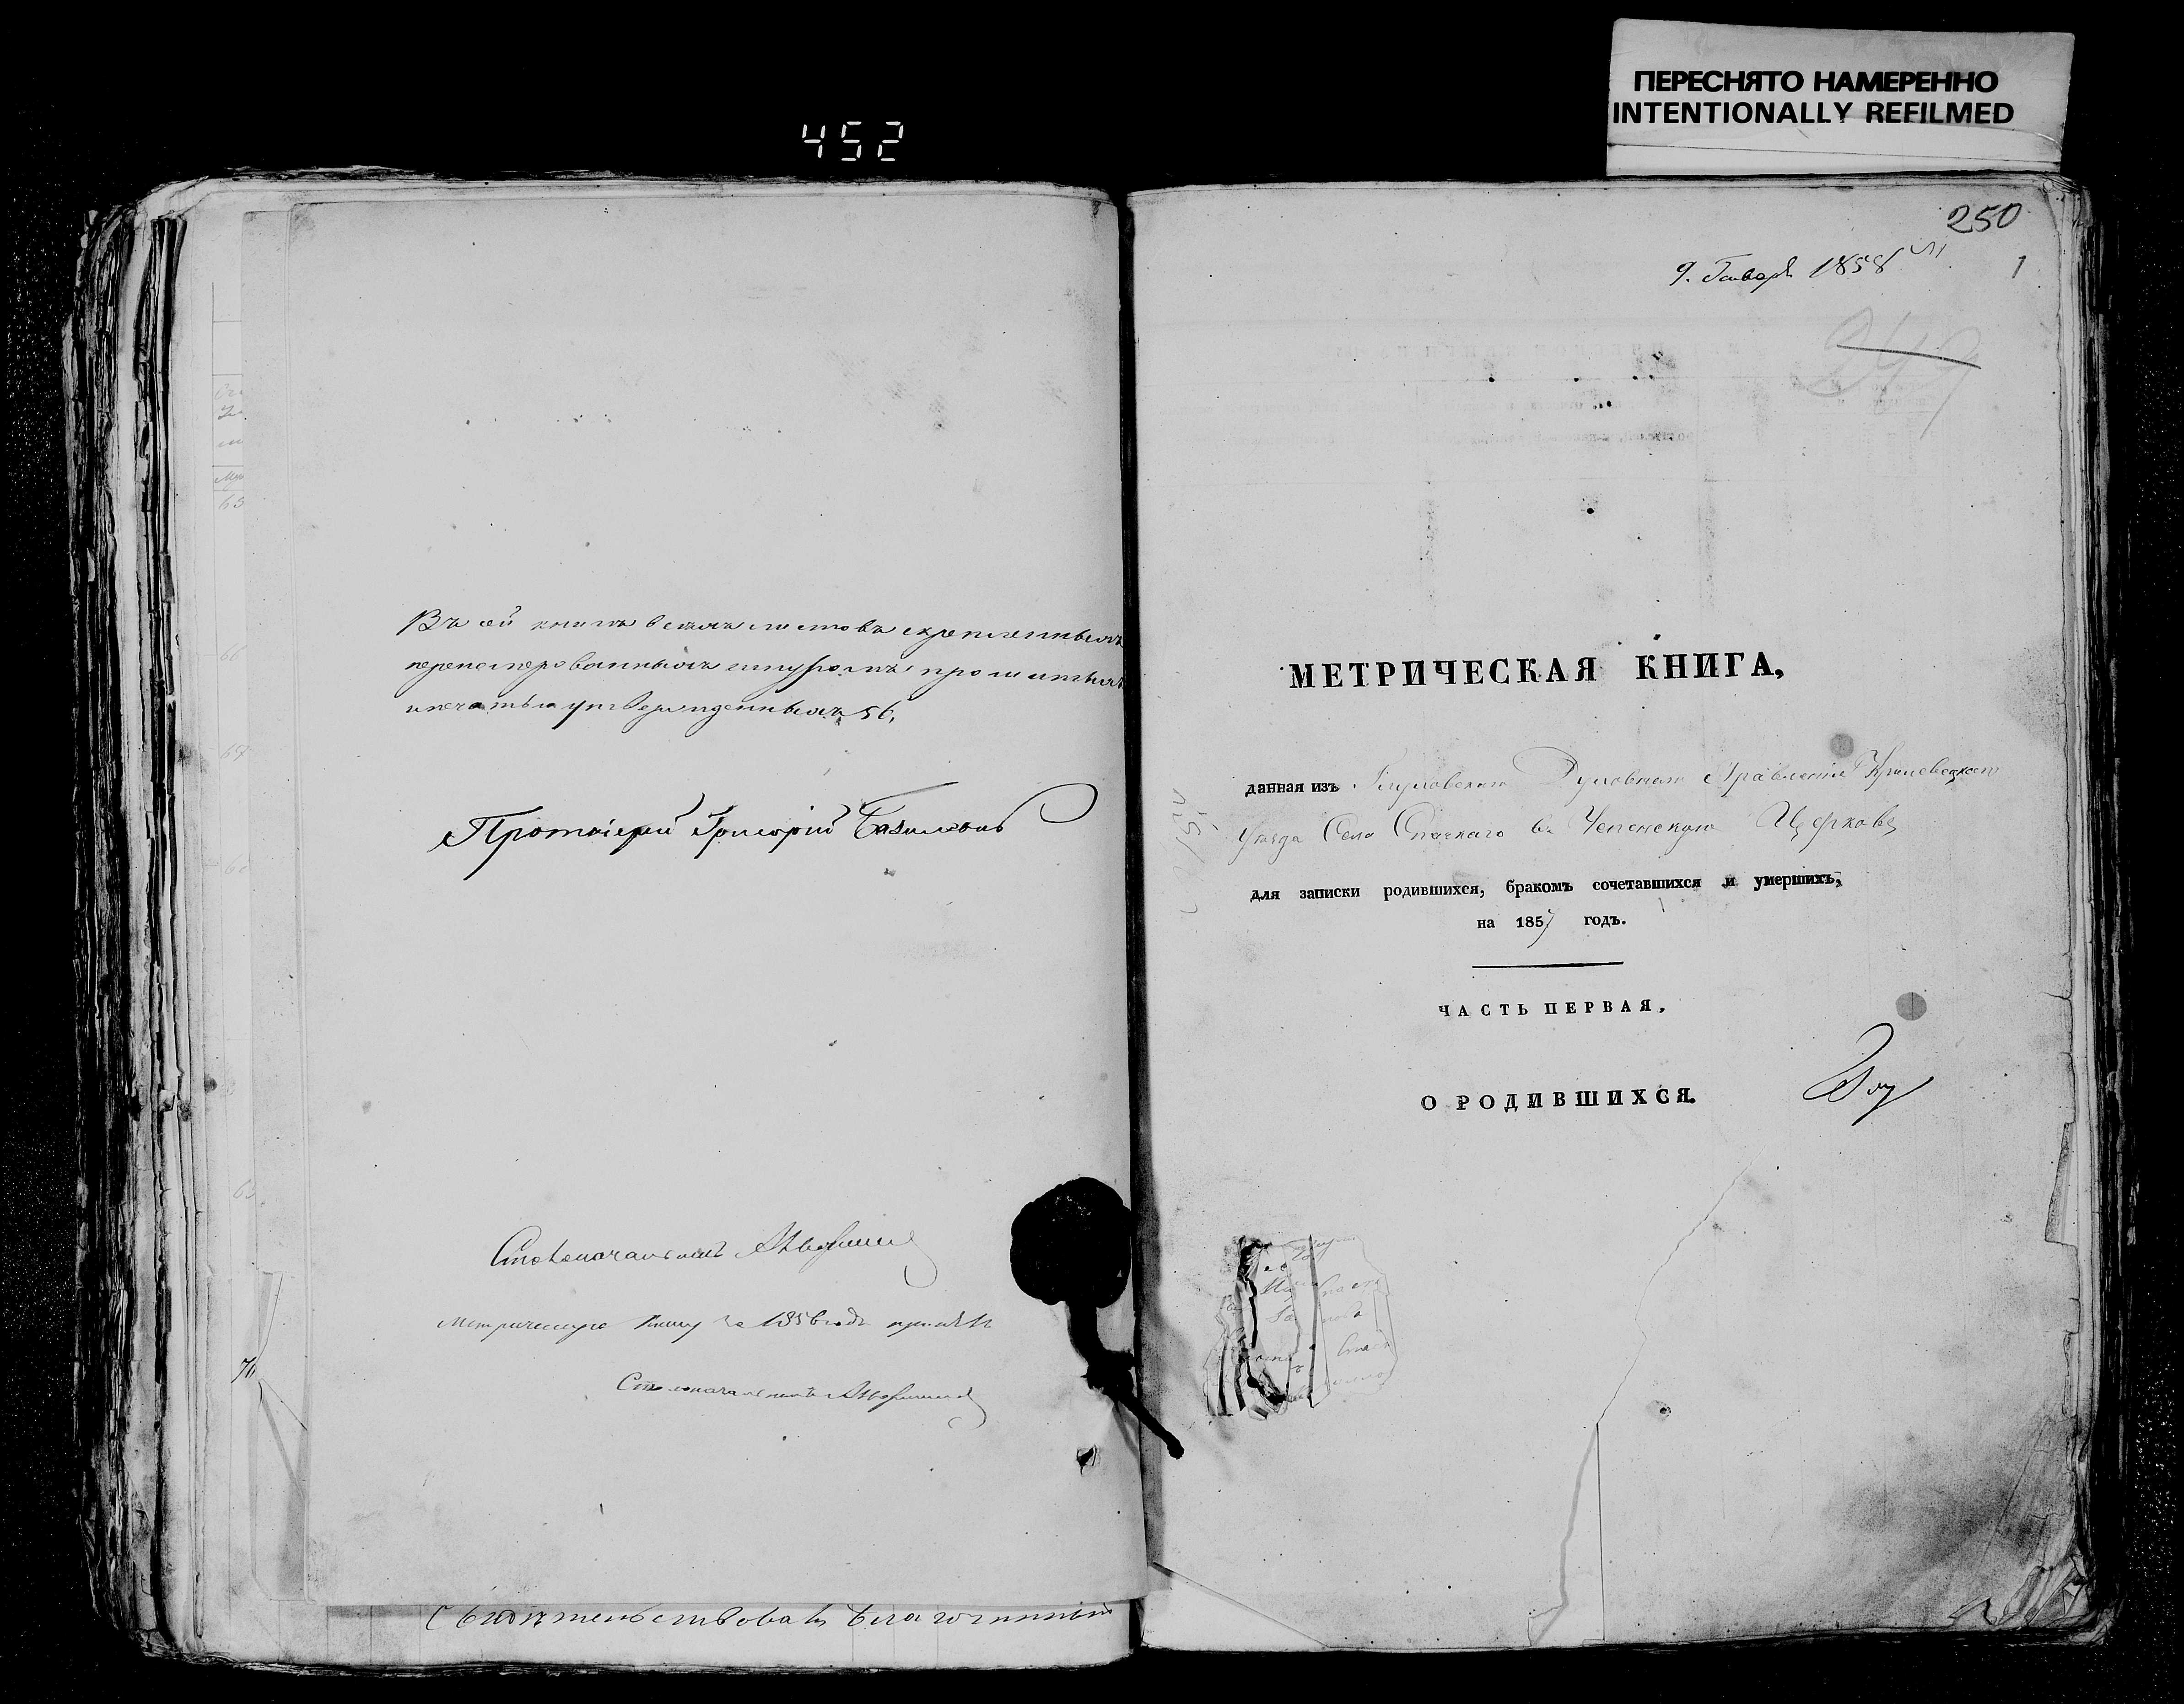 ПЕРЕСНЯТО НАМЕРЕННО
INTENTIONALLY REFILMED
452
Въ сей книгѣ всѣхъ листовъ скрепленныхъ
перенумерованныхъ шнуромъ прошитыхъ
и печатью утвержденныхъ 56,
Протоіерей Григорій
Столоначальникъ
Метрическую книгу за 1856 годъ принялъ
Столоначальникъ
70
Свидѣтельствовалъ благочинный
250
9. Января 1858
1
249
МЕТРИЧЕСКАЯ КНИГА,
данная изъ Духовнаго Правленія
Уѣзда Села Спаскаго въ Успенскую Церковь
для записки родившихся, бракомъ сочетавшихся и умершихъ,
на 1857 годъ.
ЧАСТЬ ПЕРВАЯ.
О РОДИВШИХСЯ.